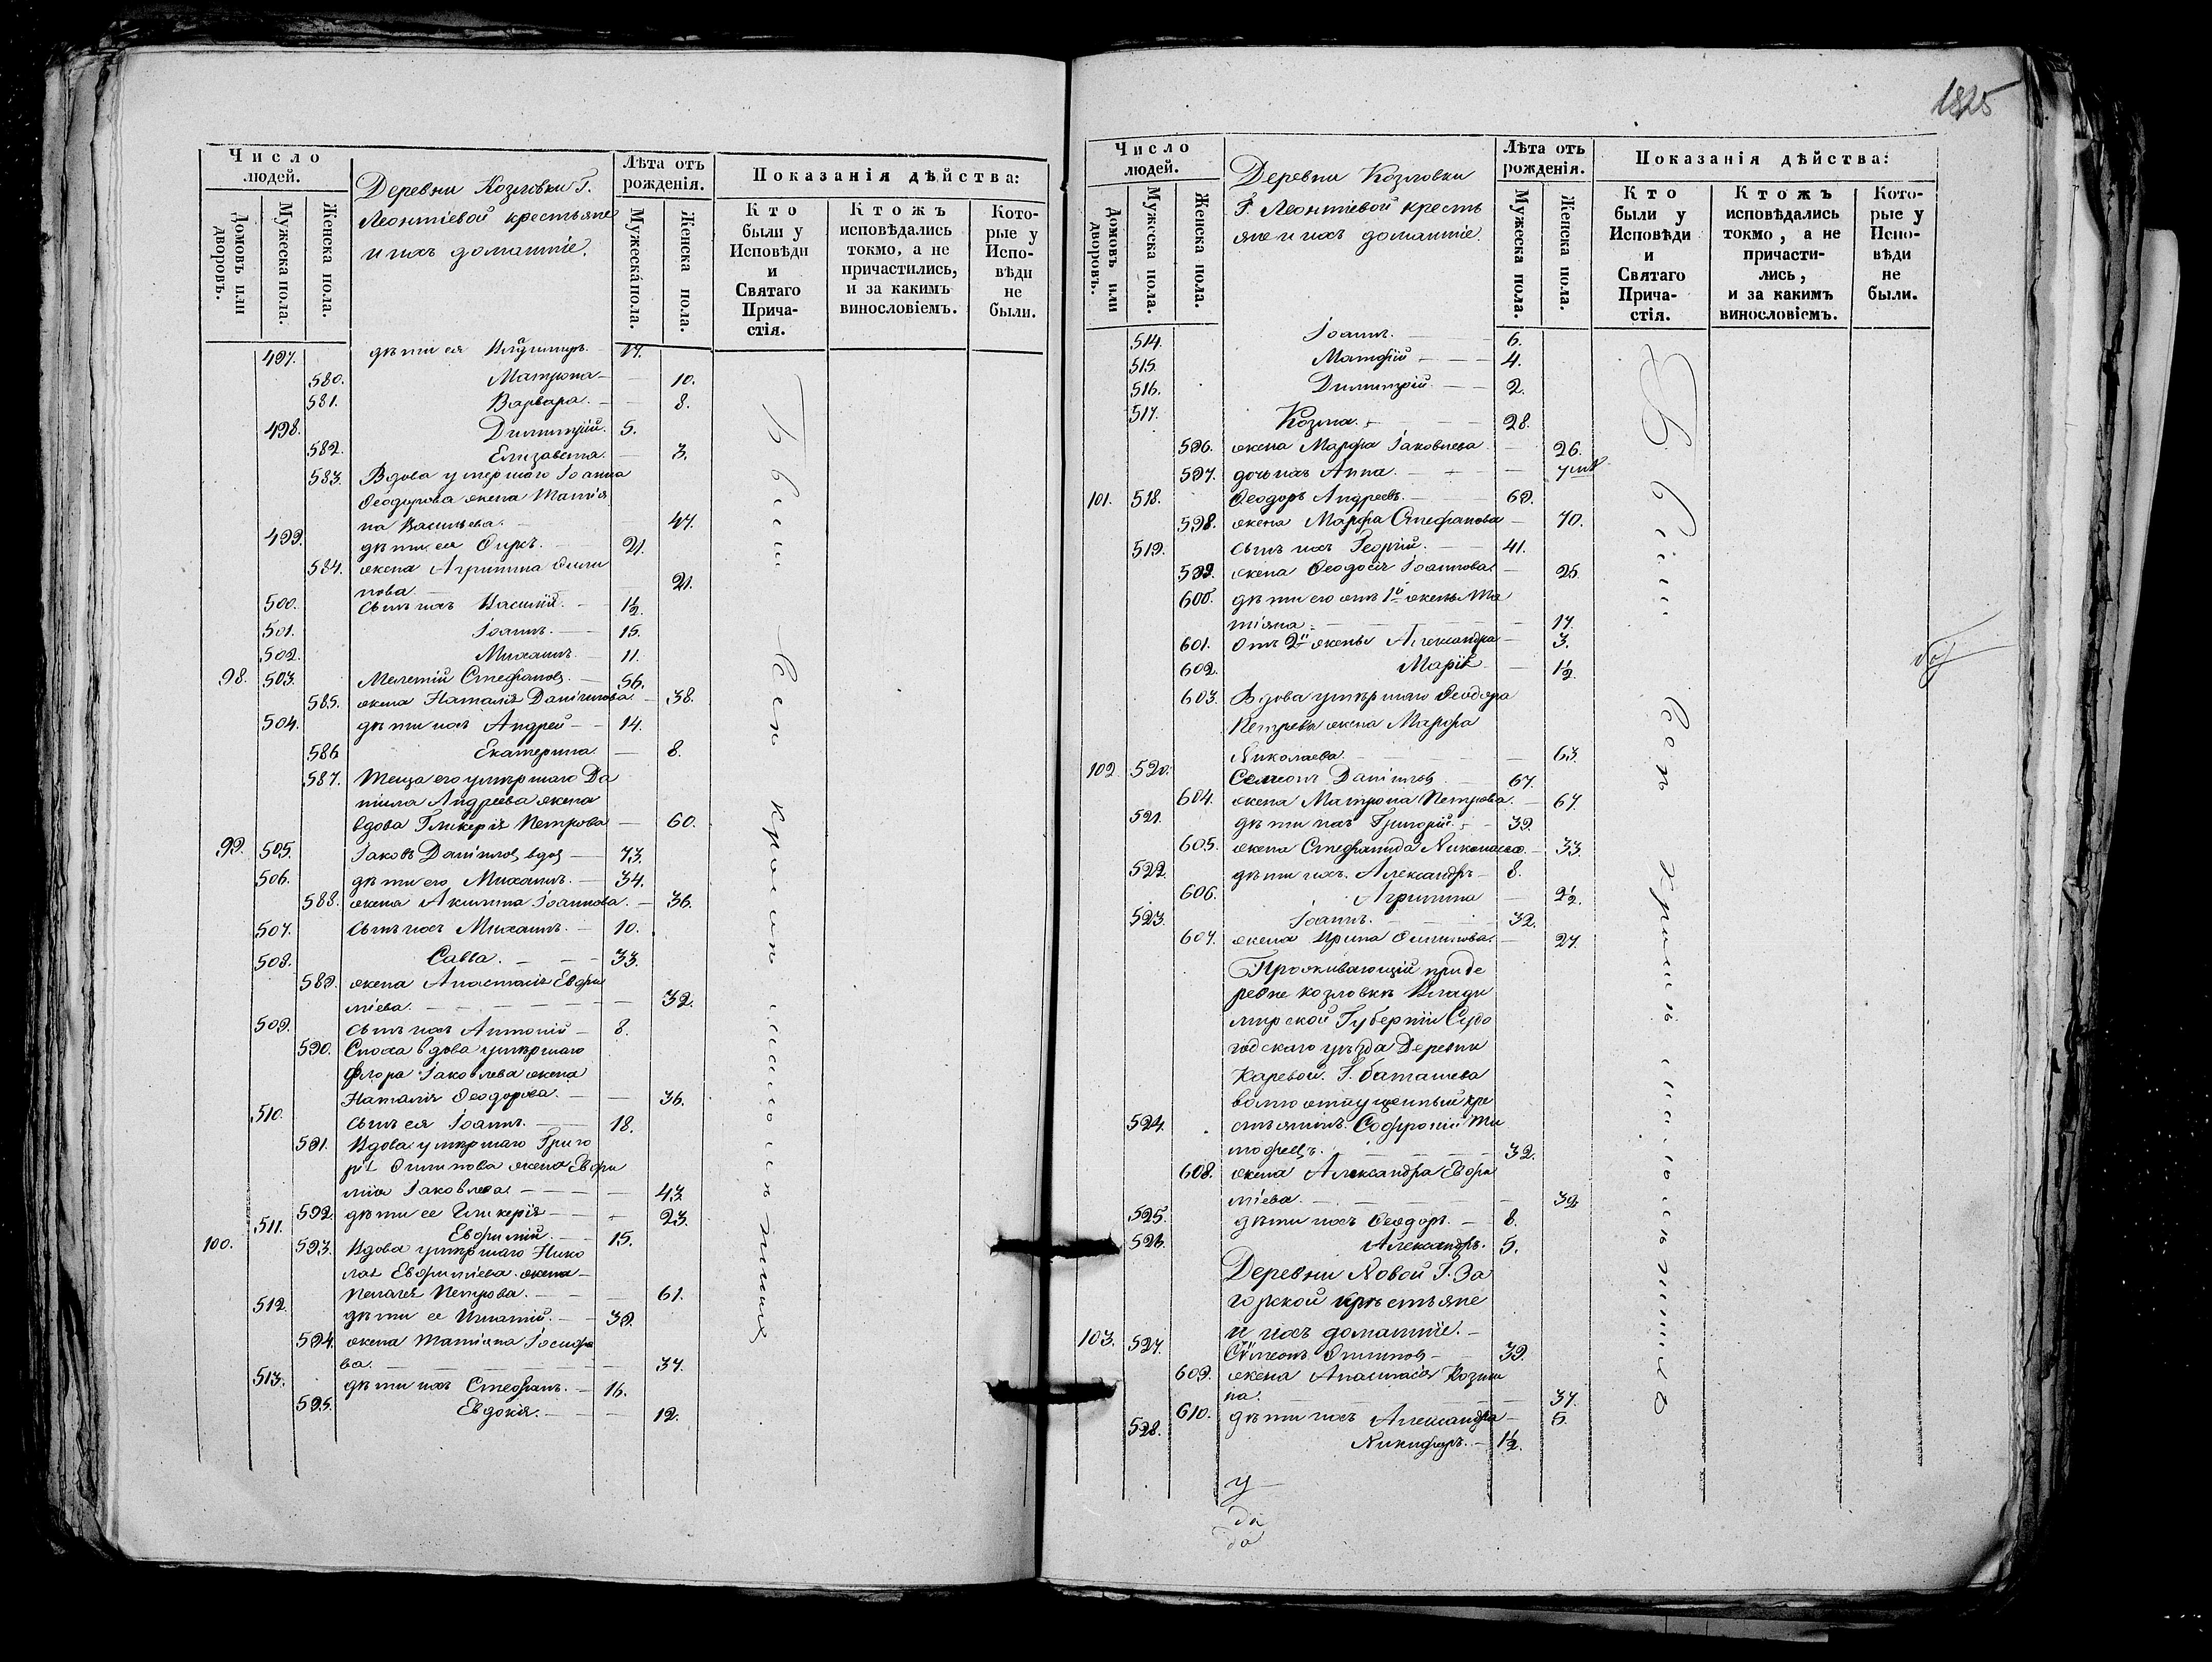 1825
Число людей.
Домовъ или дворовъ.
Мужеска пола.
Женска пола.
Деревни Козловки Г.
Леонтіевой крестьяне
и ихъ домашніе.
Лѣта отъ рожденія.
Мужеска пола.
Женска пола.
Показанія дѣйства:
Кто были у Исповѣди и Святаго Причастія.
Ктожъ исповѣдались токмо, а не причастились, и за какимъ винословіемъ.
Которые у Исповѣди не были.
497. дѣти ея 17.
580. Матрона — 10.
581. Варвара. — 8.
498. Димитрій. 5.
582. Елизавета. — 3.
583. Вдова умершаго Іоанна
Ѳеодорова жена Татія
на Васильева. 47.
499. дѣти ея 21.
584. жена Агрипина Филип
пова. — 21.
500. сынъ ихъ Василій. — 1½.
501. Іоаннъ. — 15.
502. Михаилъ. 11.
98. 503. Мелетій Стефановъ. — 56.
585. жена Наталія Даніилова. — 38.
504. дѣти ихъ Андрей — 14.
586 Екатерина. — 8.
587. Теща его умершаго Да
ніила Андреева жена
вдова Гликерія Петрова — 60.
99. 505. Іаковъ Даніиловъ вдов — 73.
506. дѣти его Михаилъ. — 34.
588. жена Акилина Іоаннова. — 36.
507. сынъ ихъ Михаилъ. — 10.
508. Савва. — 33.
589. жена Анастасія Евфи
міева. — 32.
509. сынъ ихъ Антоній — 8.
590. Сноха вдова умершаго
Флора Іаковлева жена
Наталія Ѳеодорова. — 36.
510. сынъ ея Іоаннъ. — 18.
591. Вдова умершаго Григо
рія Филипова жена Евфи
мія Іаковлева. — 43.
592. дѣти ее Гликерія — 23.
511. Евфимій. — 15.
100. 593. Вдова умершаго Нико
лая Евфиміева жена —
Пелагея Петрова. — 61.
512. дѣти ее Игнатій. — 39.
594. жена Татіана Іосифо
ва. — 37.
513. дѣти ихъ Стефанъ. — 16.
595. Евдокія. — 12.
Были
Всѣ кромѣ малолѣтнихъ
Число людей.
Домовъ или дворовъ.
Мужеска пола.
Женска пола.
Деревни Козловки
Г. Леонтіевой кресть
яне и ихъ домашніе.
Лѣта отъ рожденія.
Мужеска пола.
Женска пола.
Показанія дѣйства:
Кто были у Исповѣди и Святаго Причастія.
Ктожъ исповѣдались токмо, а не причастились, и за какимъ винословіемъ.
Которые у Исповѣди не были.
514. Іоаннъ. — 6.
515. Матфій — 4.
516. Димитрій. — 2.
517. Козма. — 28.
596. жена Марфа Іаковлева. — 26.
597. дочь ихъ Анна. —
101. 518. Ѳеодоръ Андреевъ. — 69.
598. жена Марфа Стефанова — 70.
519. сынъ ихъ Георгій. — 41.
599. жена Ѳеодосія Іоаннова — 25.
600. дѣти его отъ 1й жены Та
тіяна. — 17.
601. отъ 2й жены Александра — 3.
602. Марія — 1½
603. Вдова умершаго Ѳеодора
Петрова жена Марфа
Николаева. — 63.
102. 520. Семіонъ Даніиловъ — 67.
604. жена Матрона Петрова. — 67.
521. дѣти ихъ Григорій. — 39.
605. жена Стефанида Николаева. — 33.
522. дѣти ихъ. Александръ — 8.
606. Агрипина — 2½.
523. Іоаннъ. — 32.
607. жена Ирина Филипова. — 27.
Проживающій при де
ревне козловкѣ Влади
мирской Губерніи Судо
годскаго уѣзда Деревни
Каревой. Г. баташева
волю отпущенный кре
524. стьянинъ. Софроній Ти
мофеевъ. — 32.
608. жена Александра Евфи
міева. — 32
525. дѣти ихъ Ѳеодоръ. — 8.
526. Александръ. 5.
Деревни Новой Г. За
горской крестьяне
и ихъ домашніе. —
103. 527. Сѵмеонъ Филиповъ — 39.
609. жена Анастасія Козми
на. — 37.
610. дѣти ихъ Александра — 5.
528. Никифоръ. — 1½.
у
да
да
Были
Всѣ кромѣ малолѣтнихъ